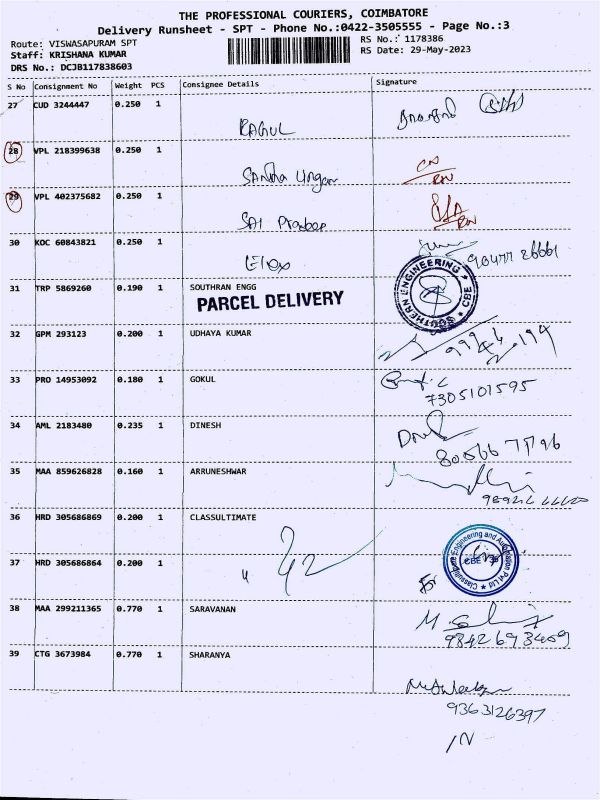 THE PROFESSIONAL COURIERS, COIMBATORE
Delivery Runsheet - SPT - Phone No.:0422-3505555 - Page No.:3
Route: VISWASAPURAM SPT
RS No.: 1178386
Staff: KRISHANA KUMAR
RS Date: 29-May-2023
DRS No.: DCJB117838603
S No Consignment No Weight PCS Consignee Details Signature
27 CUD 3244447 0.250 1
RAGUL
28 VPL 218399638 0.250 1
29 VPL 402375682 0.250 1
SAI Pradeep
30 KOC 60843821 0.250 1
31 TRP 5869260 0.190 1 SOUTHRAN ENGG
PARCEL DELIVERY
SOUTHERN ENGINEERING
CBE
32 GPM 293123 0.200 1 UDHAYA KUMAR
33 PRO 14953092 0.180 1 GOKUL
7305101595
34 AML 2183480 0.235 1 DINESH
35 MAA 859626828 0.160 1 ARRUNESHWAR
36 HRD 305686869 0.200 1 CLASSULTIMATE
37 HRD 305686864 0.200 1 "
Classultimate Engineering and Automation Pvt Ltd
38 MAA 299211365 0.770 1 SARAVANAN
9842693409
39 CTG 3673984 0.770 1 SHARANYA
9363126397